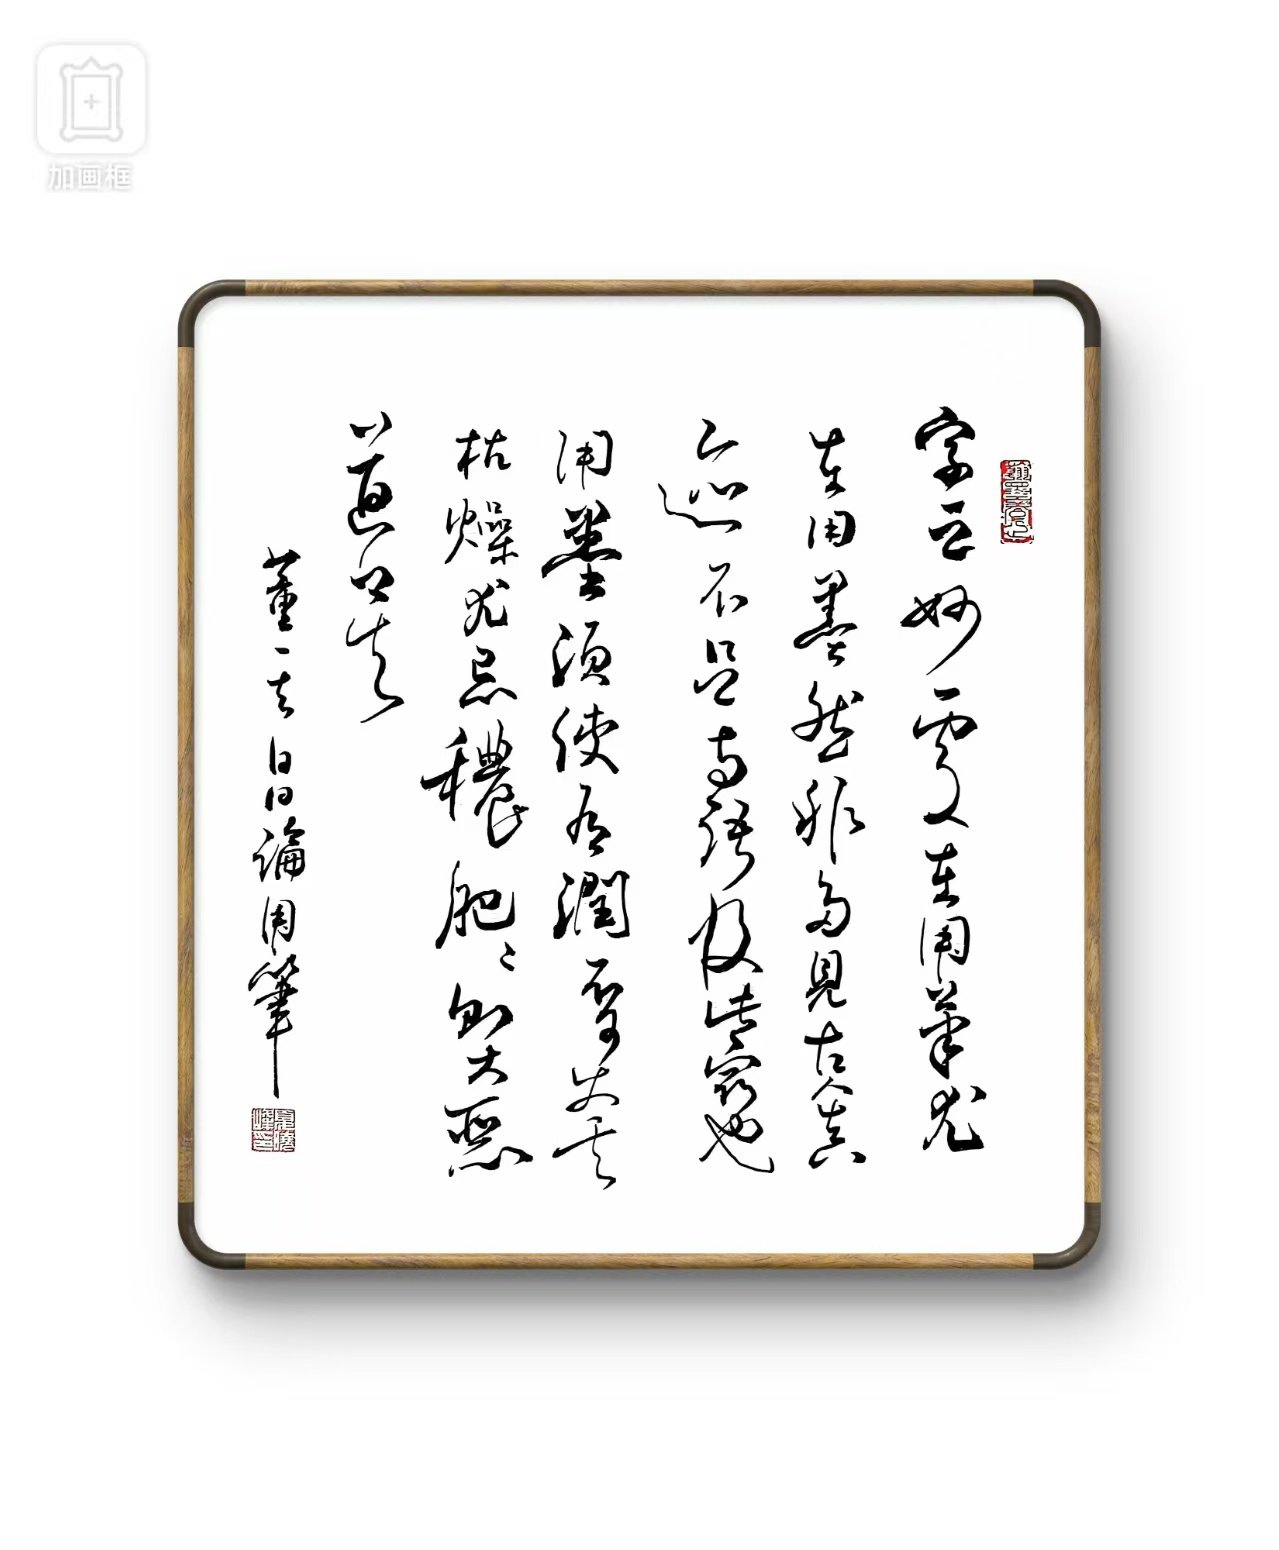 加画框
字之妙處在用筆尤
在用墨然非多見古人真
跡不足與語及此竅也
用墨須使有潤不可使其
枯燥尤忌穠肥肥則大惡
道矣
董其昌論用筆